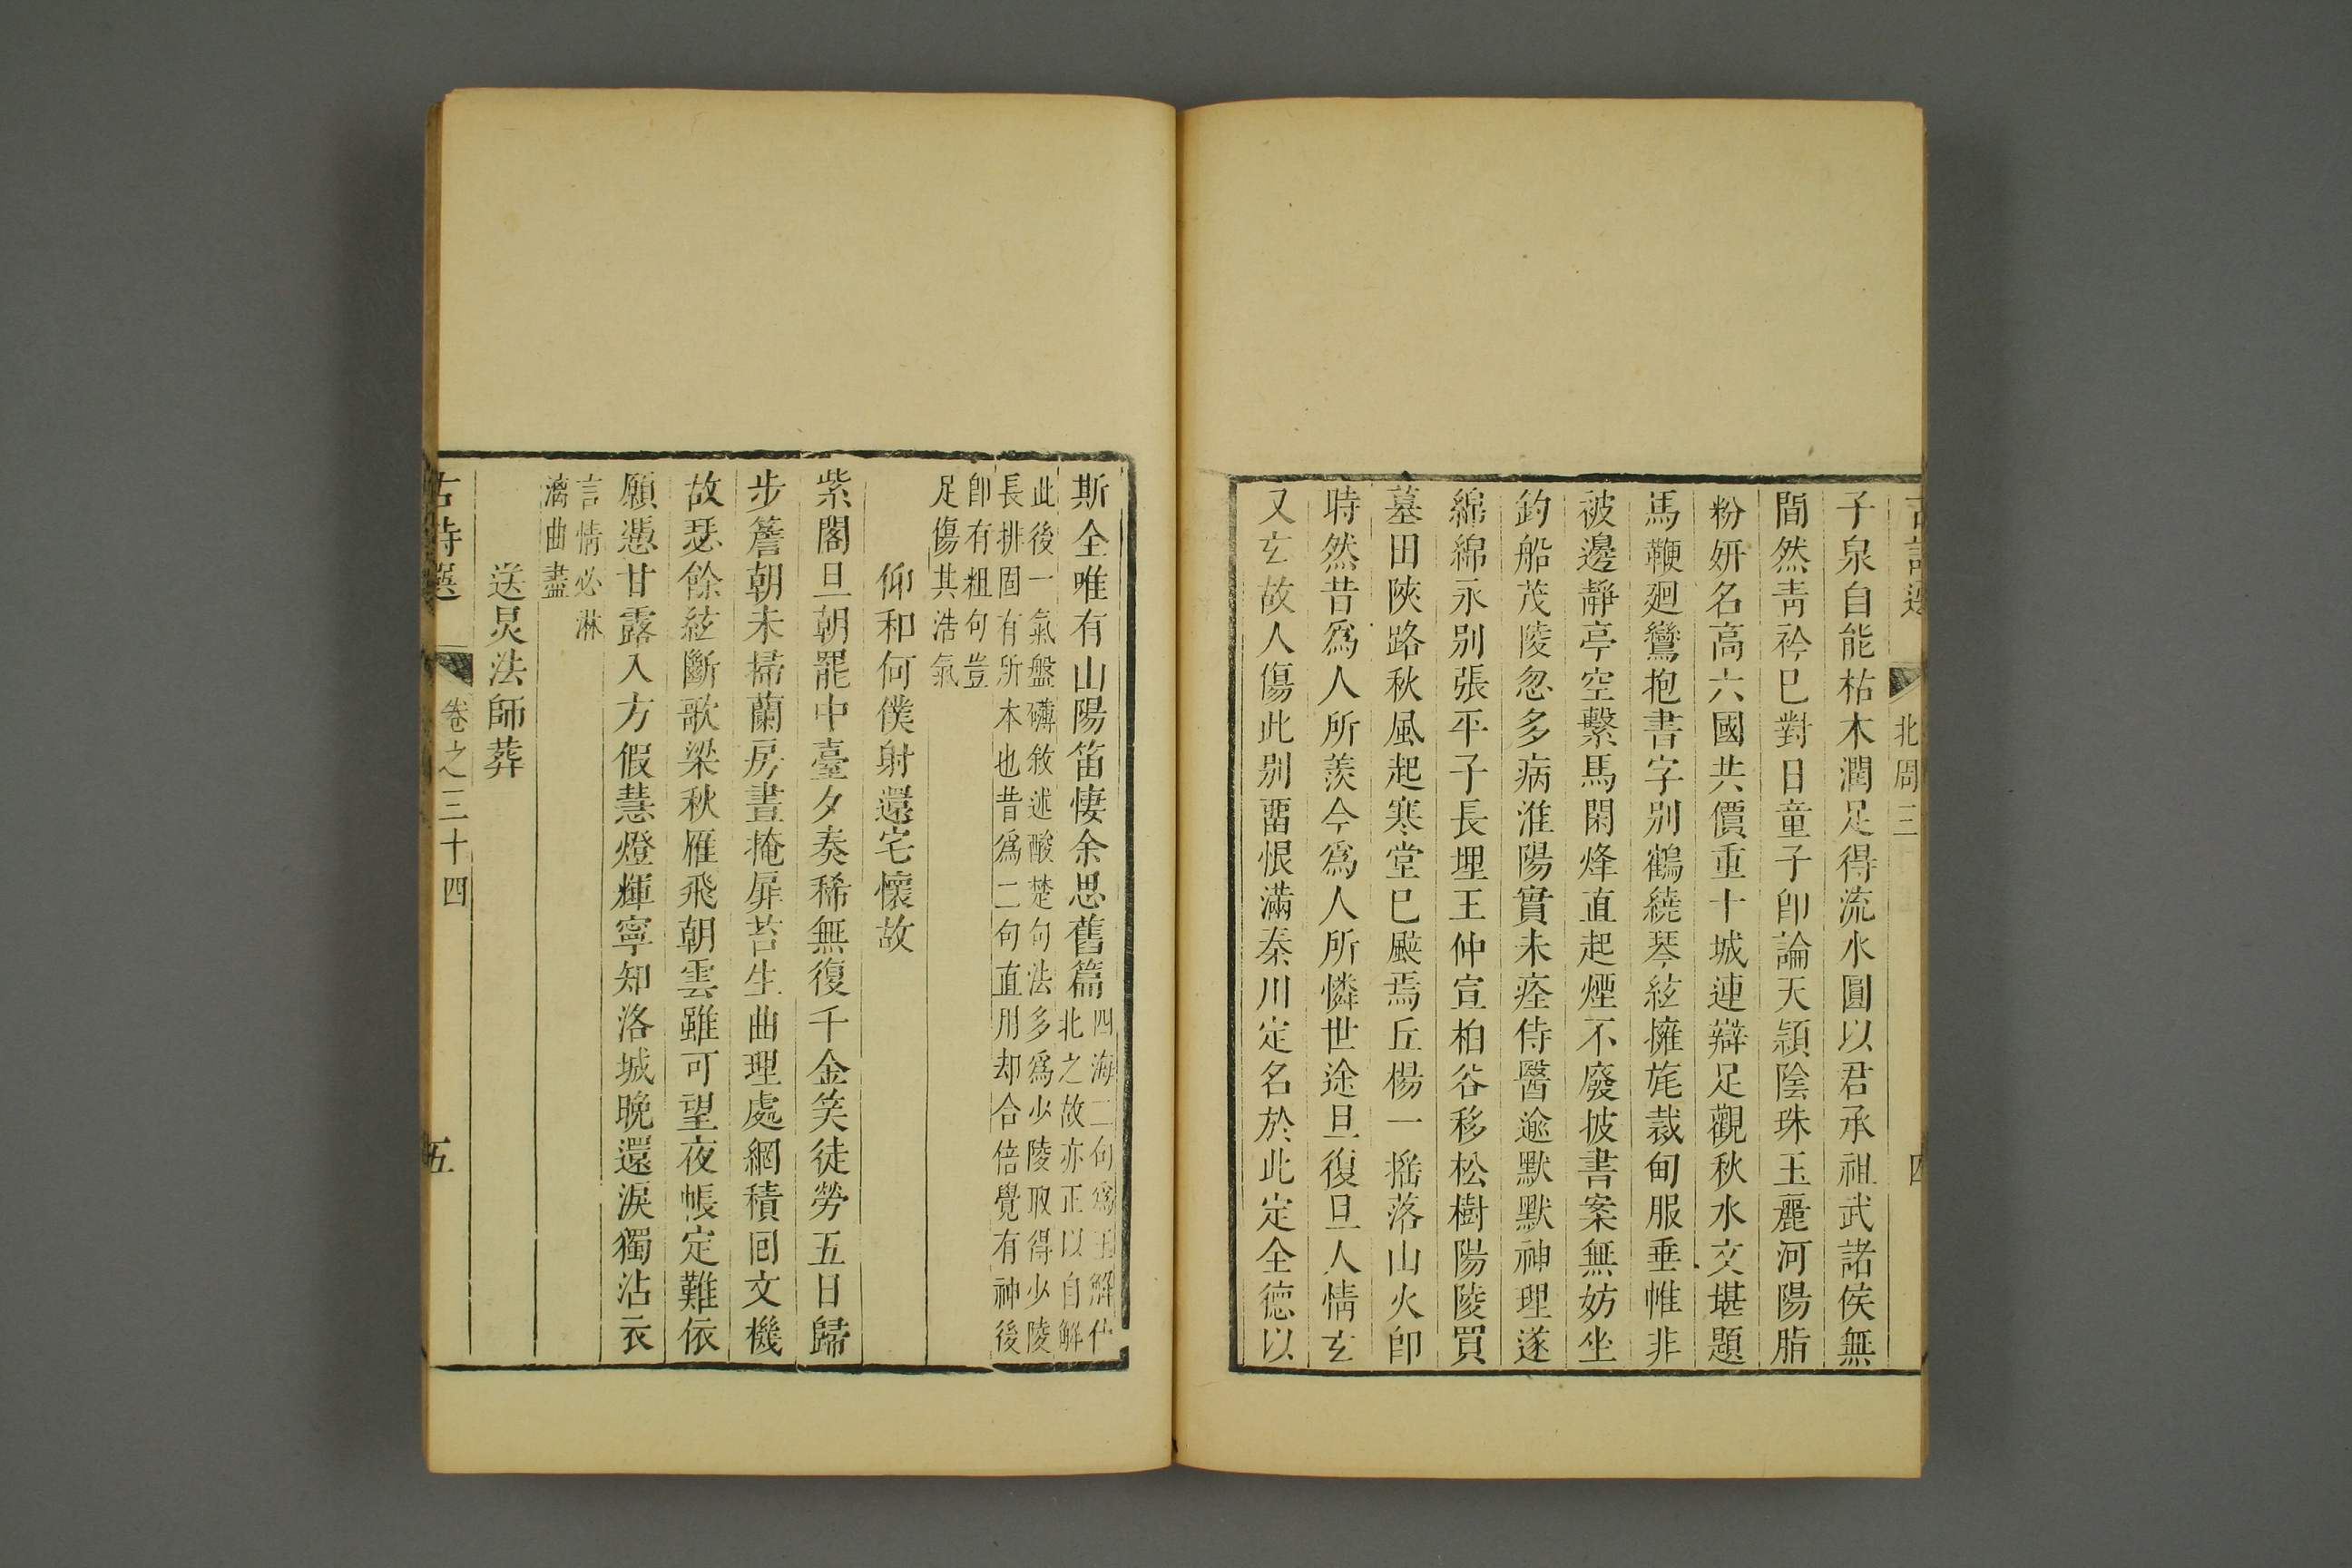 古詩選 北周三 四
子泉自能枯木潤足得流水圓以君承祖武諸侯無
間然青衿巳對日童子卽論天頴陰珠玉麗河陽脂
粉妍名高六國共價重十城連辯足觀秋水文堪題
馬鞭廻鸞抱書字别鶴繞琴絃擁旄裁甸服垂帷非
被邊靜亭空繫馬閑烽直起煙不廢披書案無妨坐
釣船茂陵忽多病淮陽實未痊侍醫逾默默神理遂
綿綿永别張平子長埋王仲宣柏谷移松樹陽陵買
墓田陜路秋風起寒堂巳颼焉丘楊一摇落山火卽
時然昔爲人所羨今爲人所憐世途旦復旦人情玄
又玄故人傷此别留恨滿秦川定名於此定全德以
斯全唯有山陽笛悽余思舊篇四海二句爲王解仕
北之故亦正以自解
此後一氣盤礴敘述酸楚句法多爲少陵取得少陵
長排固有所本也昔爲二句直用却合倍覺有神後
卽有粗句豈
足傷其浩氣
仰和何僕射還宅懷故
紫閣旦朝罷中臺夕奏稀無復千金笑徒勞五日歸
步簷朝未掃蘭房晝掩扉苔生曲理處網積回文機
故瑟餘絃斷歌梁秋雁飛朝雲雖可望夜帳定難依
願憑甘露入方假慧燈輝寧知洛城晚還淚獨沾衣
言情必淋
漓曲盡
送炅法師葬
古詩選 卷之三十四 五